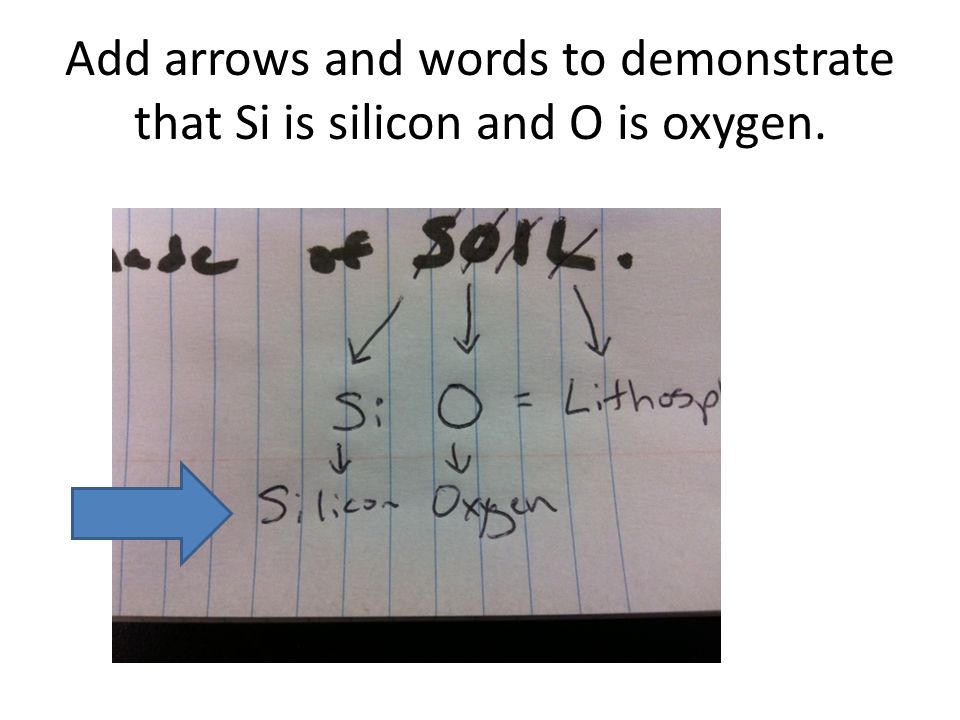 Add arrows and words to demonstrate
that Si is silicon and O is oxygen.
of SOIL.
Si O =
Silicon Oxygen